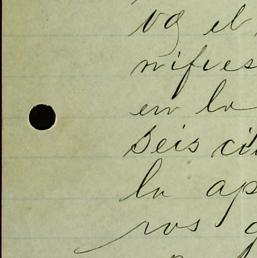 va el
nifies
en la
seis ci
la ap
ros g